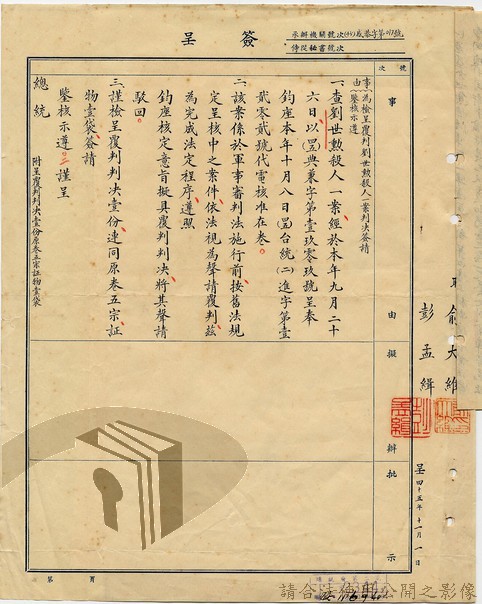 簽呈
承辦機關號次
侍從秘書號次
號次
事由擬辦批示
事由
為檢呈覆判劉世勲殺人一案判決簽請
鑒核示遵
一、查劉世勲殺人一案經於本年九月二十
六日以(四五)典秉字第壹玖零玖號呈奉
鈞座本年十月八日(四五)台統(二)進字第壹
貳零貳號代電核准在卷。
二、該案係於軍事審判法施行前按舊法規
定呈核中之案件依法視為聲請覆判茲
為完成法定程序遵照
鈞座核定意旨擬具覆判判決將其聲請
駁回。
三、謹檢呈覆判判決壹份連同原卷五宗証
物壹袋簽請
鑒核示遵。謹呈
總統
附呈覆判判決壹份原卷五宗証物壹袋
俞大維
彭孟緝
呈四十五年十一月一日
第頁
請合法使用公開之影像